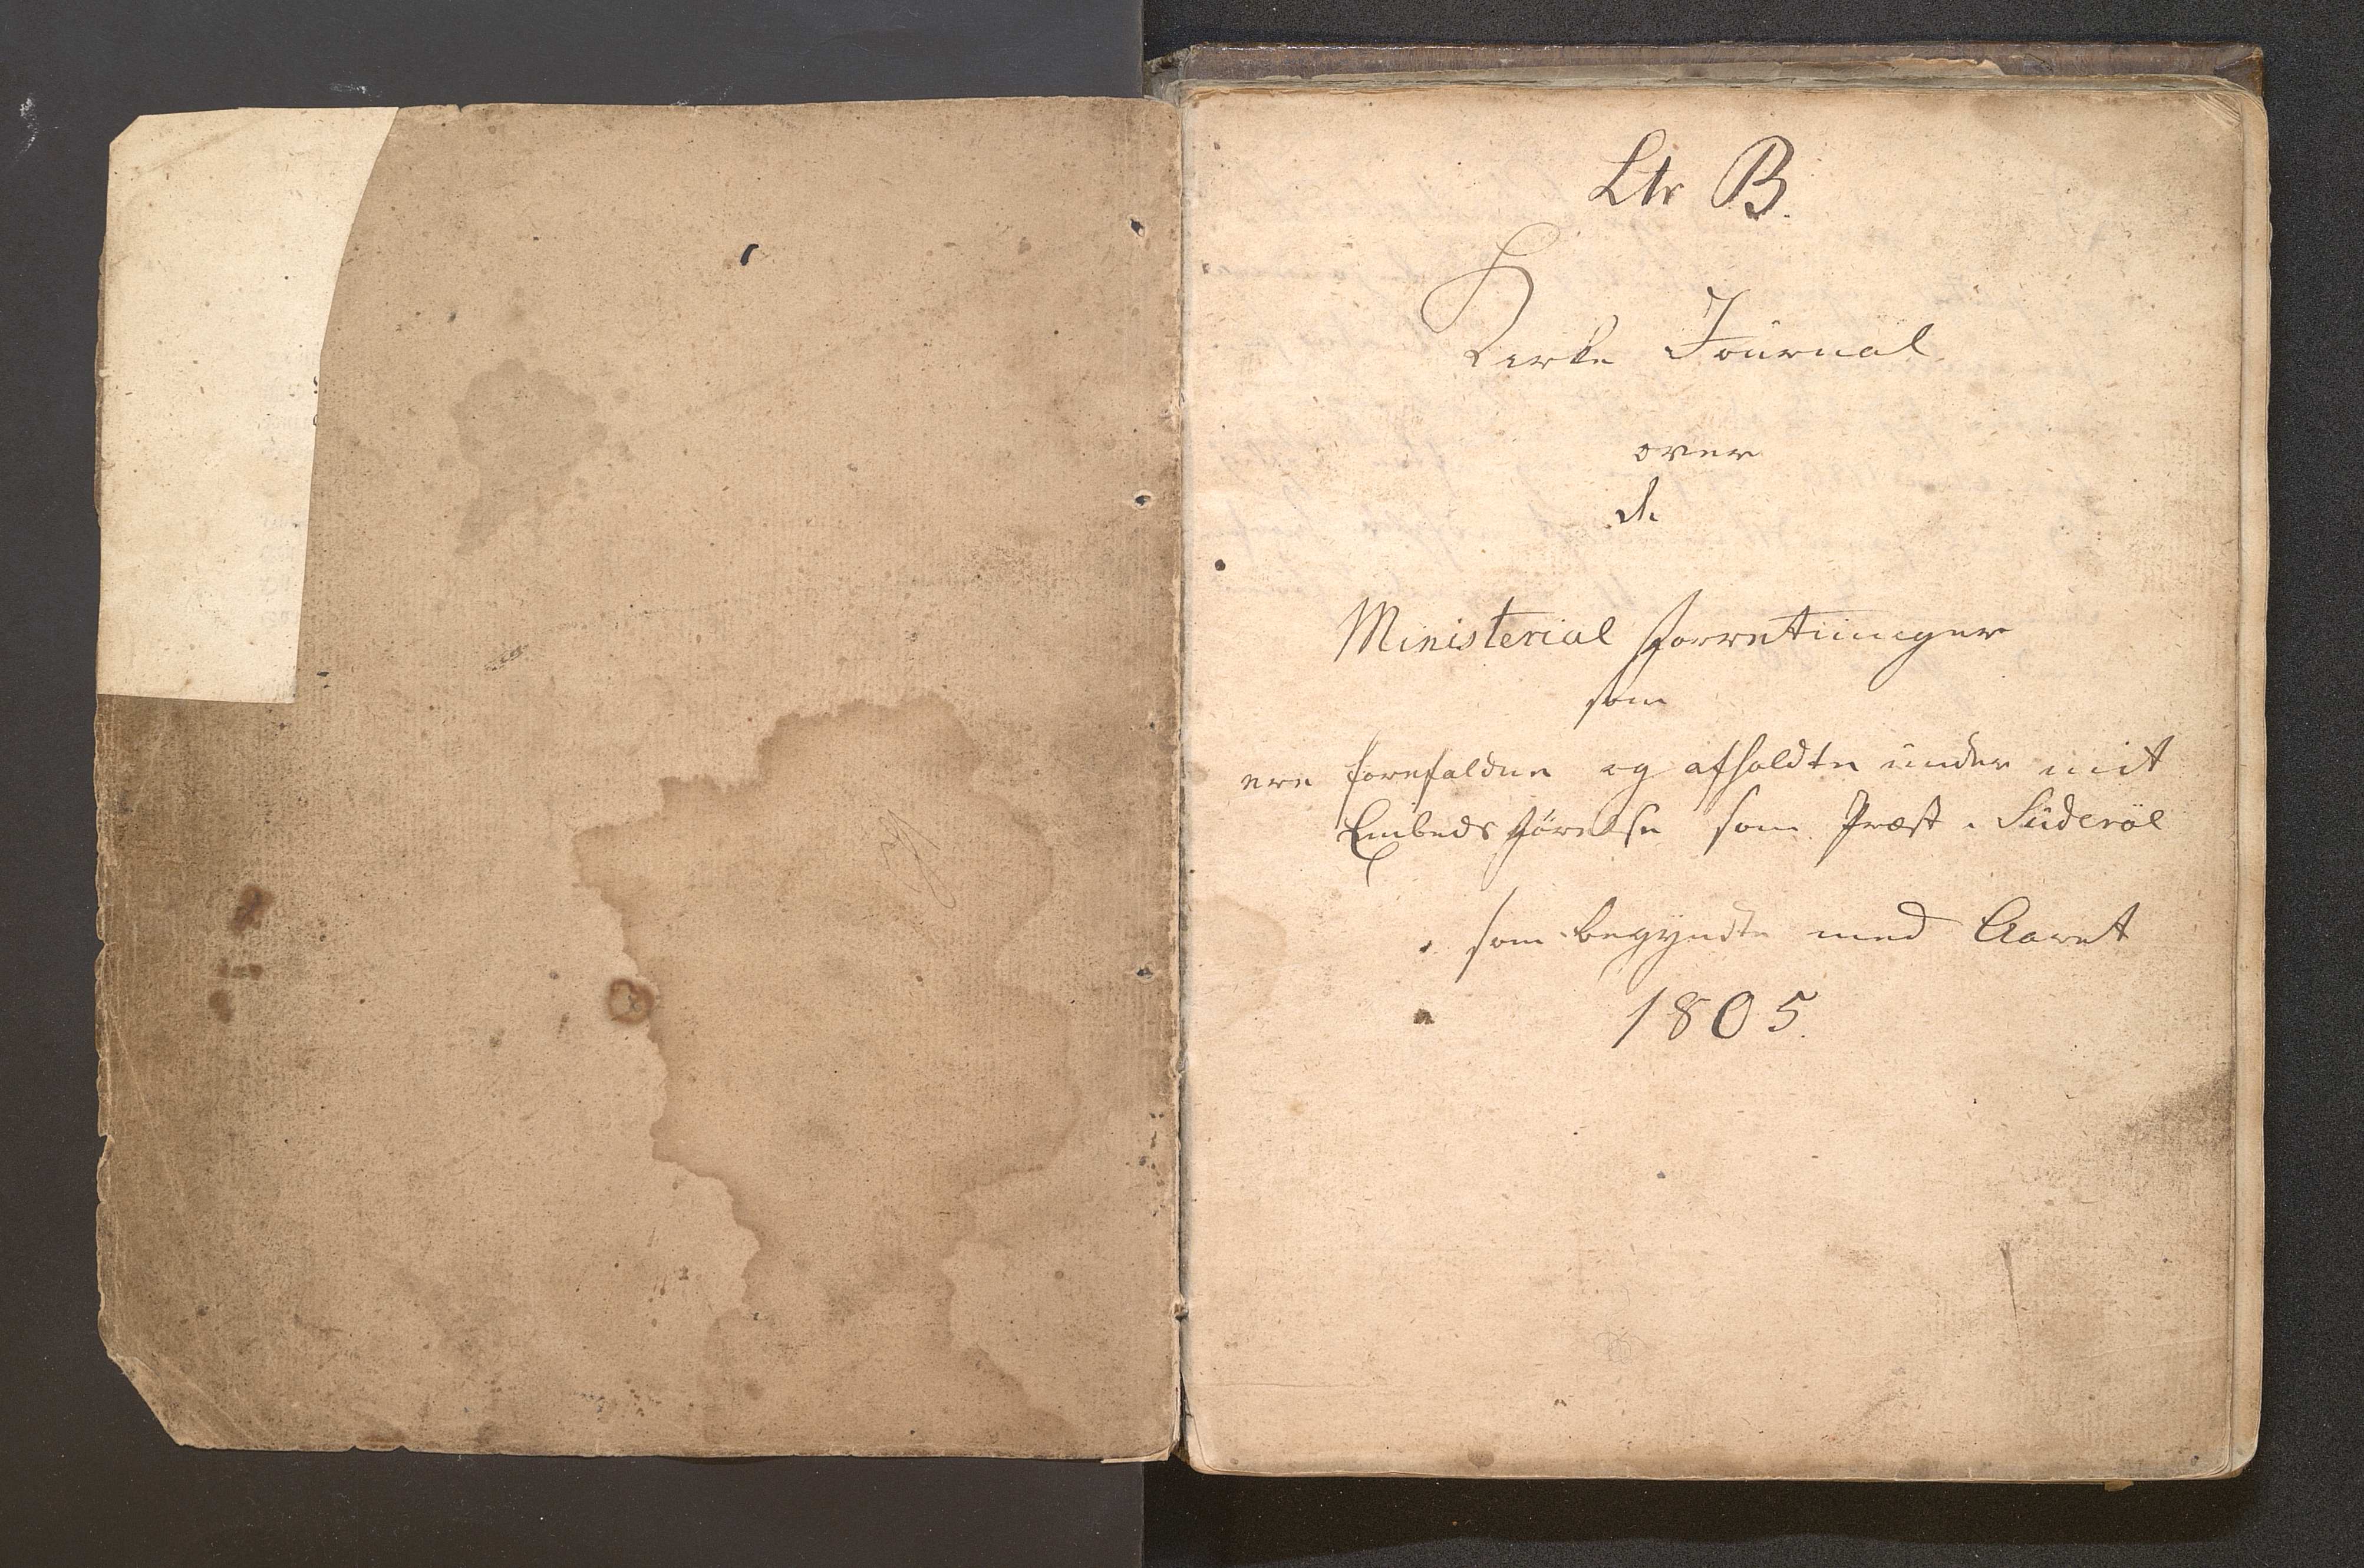 Ltr B.
Kirke Journal
over
de
Ministerial Forretninger
som
ere forefaldne og afholdte under mit
Embeds førelse som Præst i Süderöe
som begyndte med Aaret
1805.